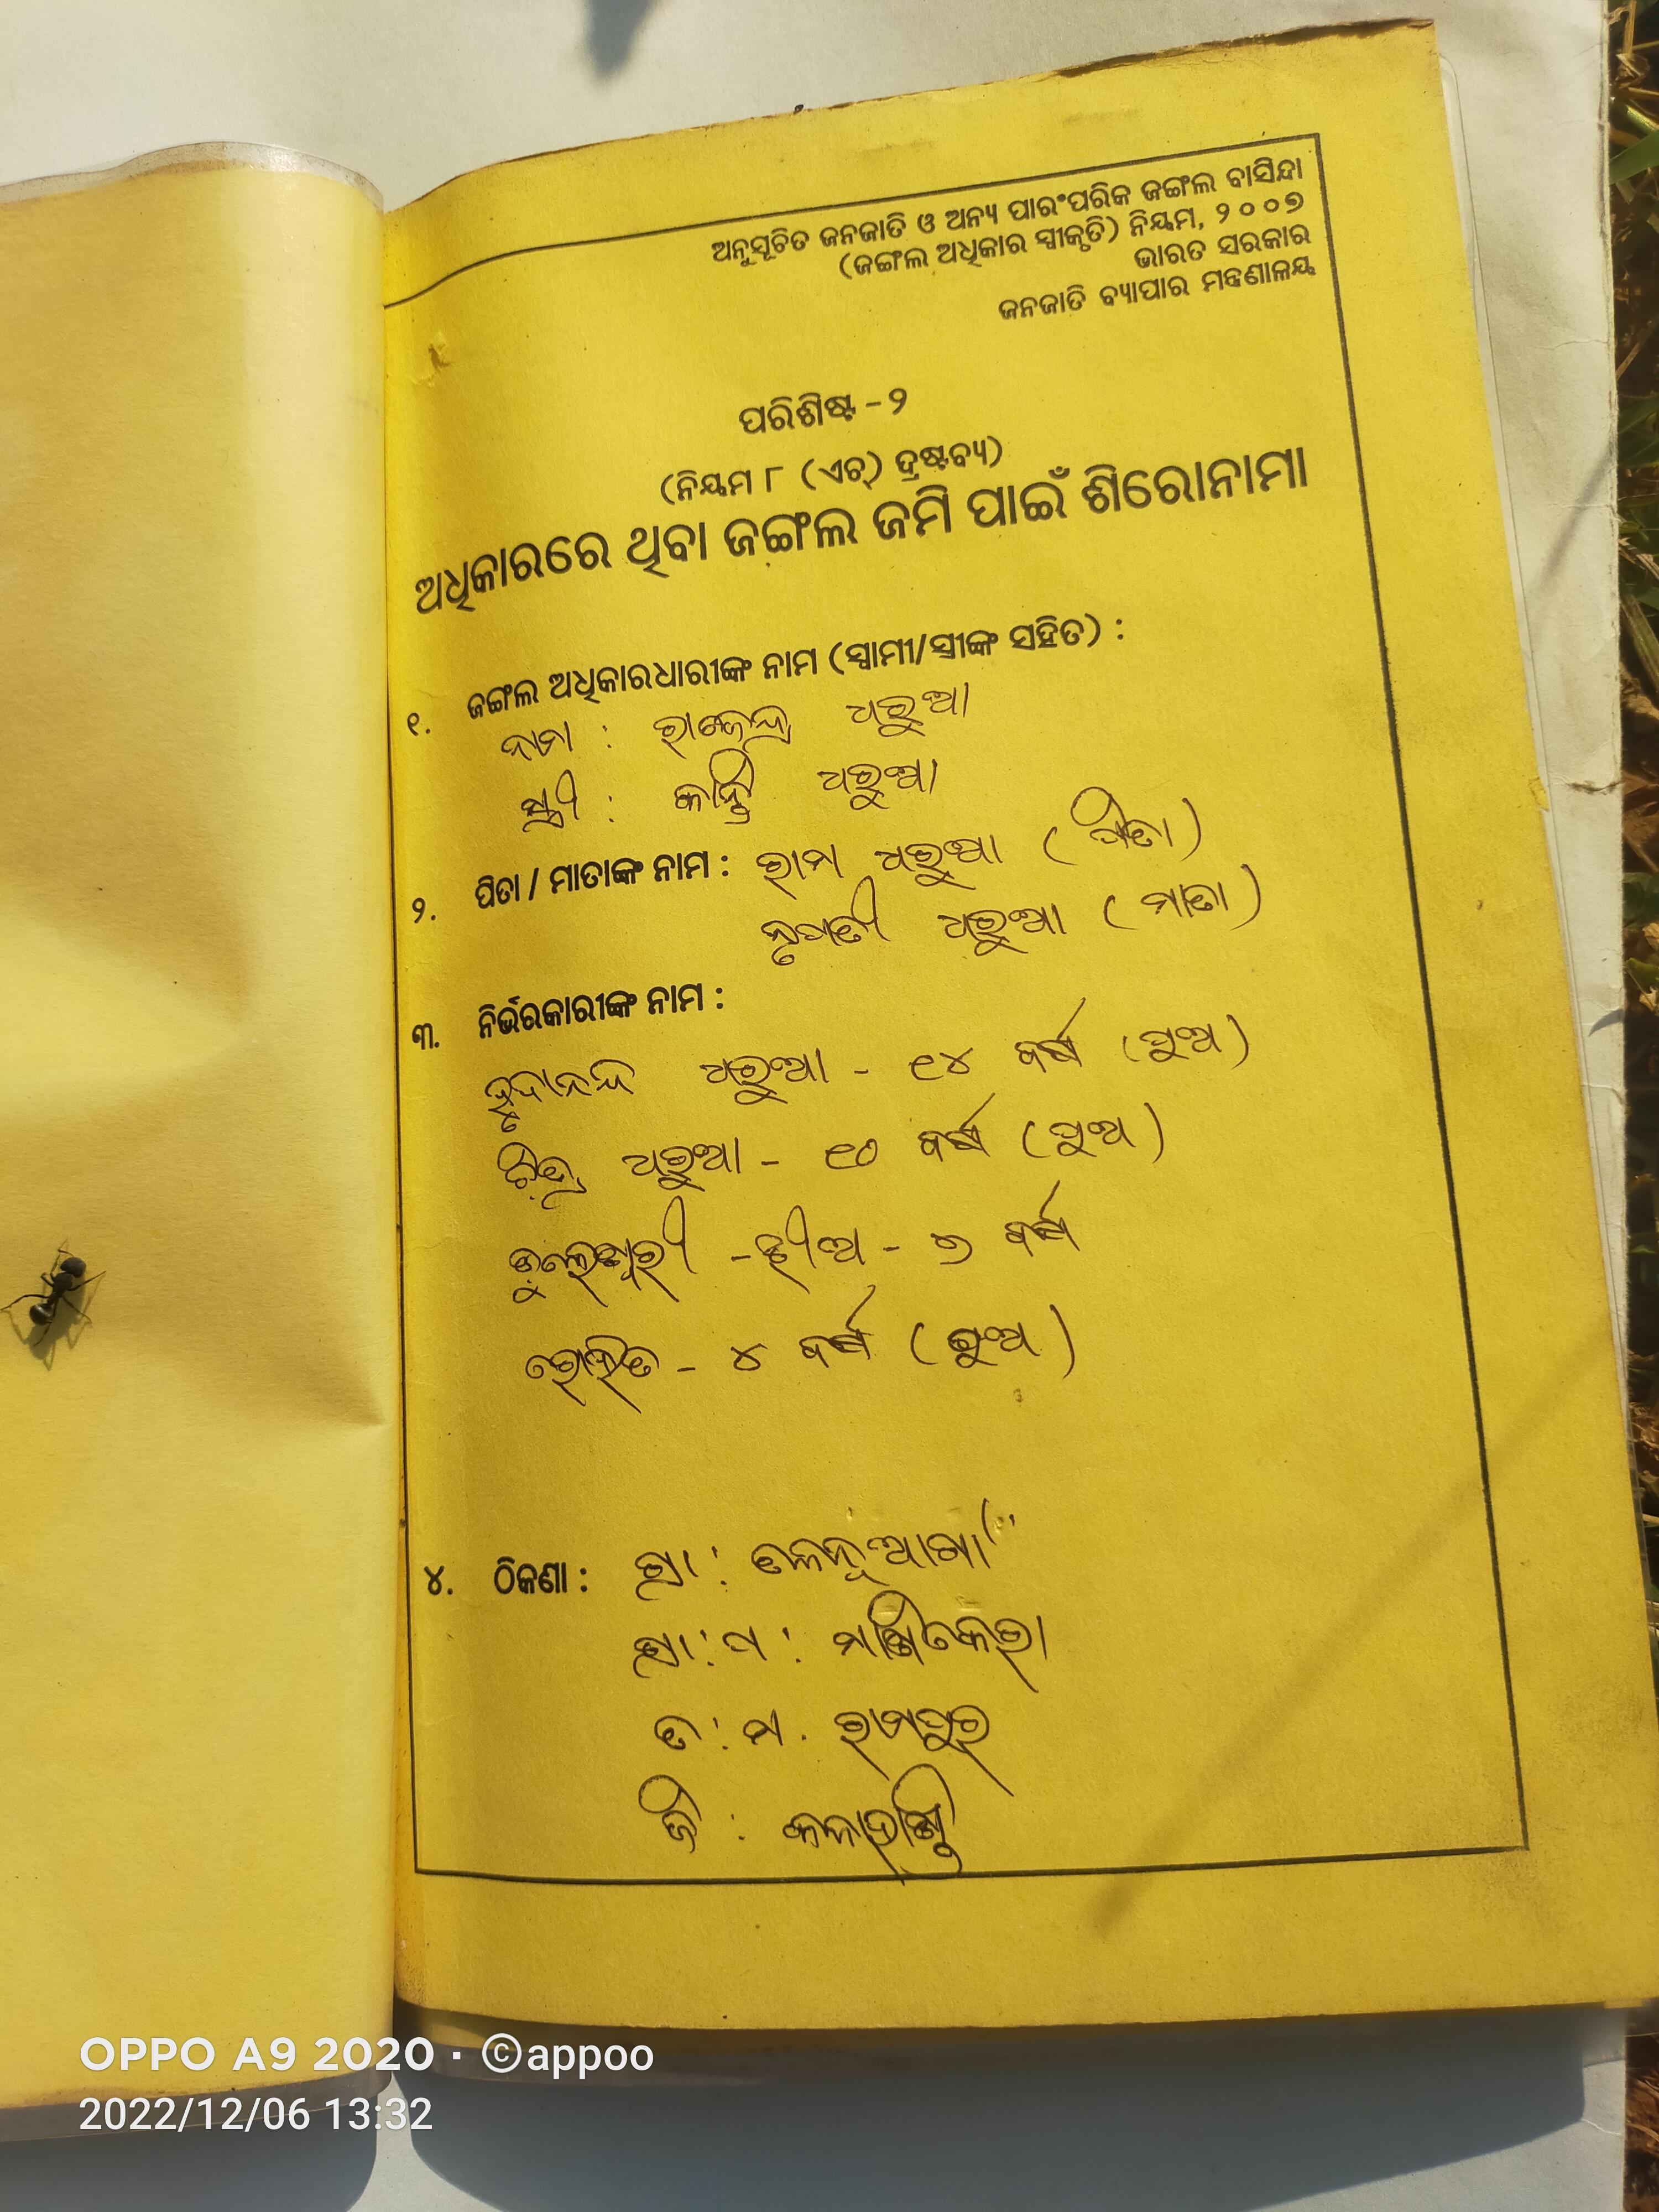 ଅନୁସୂଚିତ ଜନଜାତି ଓ ଅନ୍ୟ ପାରଂପରିକ ଜଙ୍ଗଲ ବାସିନ୍ଦା
(ଜଙ୍ଗଲ ଅଧିକାର ସ୍ୱୀକୃତି) ନିୟମ, ୨୦୦୭
ଭାରତ ସରକାର
ଜନଜାତି ବ୍ୟାପାର ମନ୍ତ୍ରଣାଳୟ
ପରିଶିଷ୍ଟ - ୨
(ନିୟମ ୮ (ଏଚ୍) ଦ୍ରଷ୍ଟବ୍ୟ)
ଅଧିକାରରେ ଥିବା ଜଙ୍ଗଲ ଜମି ପାଇଁ ଶିରୋନାମା
୧. ଜଙ୍ଗଲ ଅଧିକାରଧାରୀଙ୍କ ନାମ (ସ୍ୱାମୀ/ସ୍ତ୍ରୀଙ୍କ ସହିତ) :
ନାମ : ରାଜେନ୍ଦ୍ର ଧରୁଆ
ସ୍ତ୍ରୀ : ଧରୁଆ
୨. ପିତା / ମାତାଙ୍କ ନାମ : ରାମ ଧରୁଆ (ପିତା)
ଧରୁଆ (ମାତା)
୩. ନିର୍ଭରକାରୀଙ୍କ ନାମ :
ଧରୁଆ - ୧୪ ବର୍ଷ (ପୁଅ)
ଧରୁଆ - ୧୦ ବର୍ଷ (ପୁଅ)
- ଝୀଅ - ୭ ବର୍ଷ
ରୋହିତ - ୪ ବର୍ଷ (ପୁଅ)
୪. ଠିକଣା : ଗ୍ରା :
ଗ୍ରା : ପ :
ତ : ମ . ରାମପୁର
ଜି : କଳାହାଣ୍ଡି
OPPO A9 2020 · ©appoo
2022/12/06 13:32